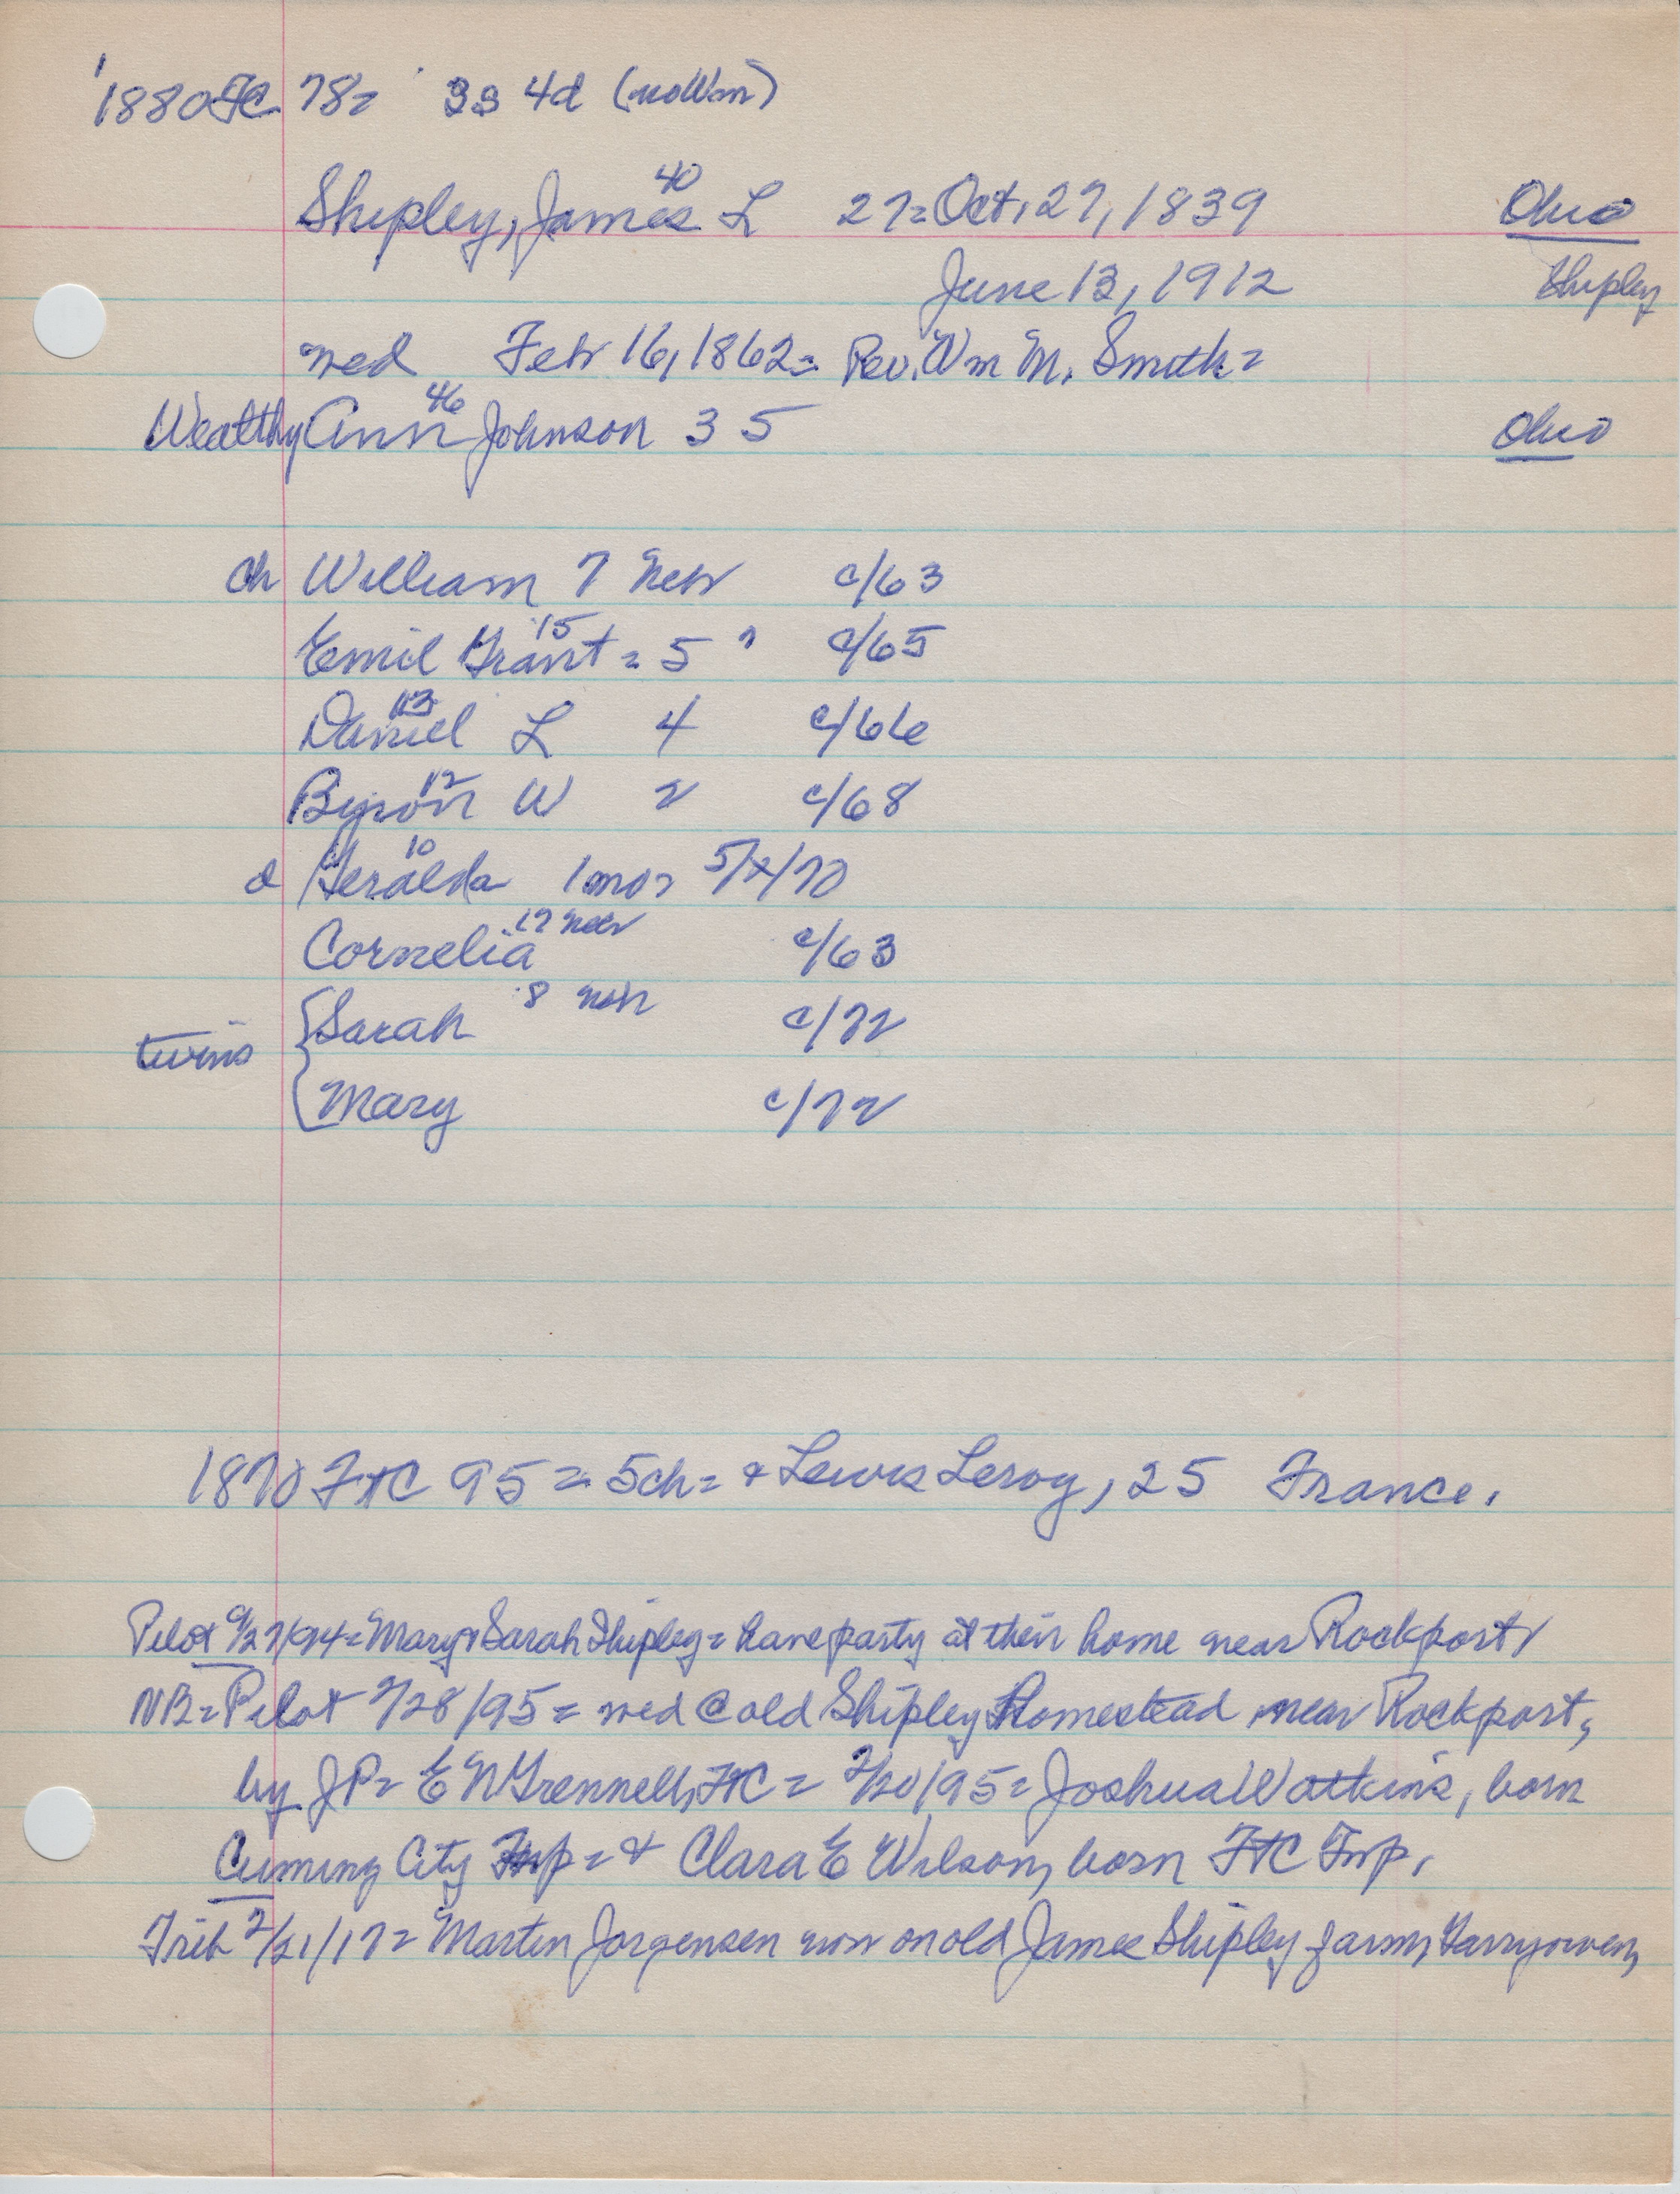 1880 FtC 78= 3s 4d (no Wm)
40
Shipley, James L 27= Oct. 27, 1839 Ohio
June 13, 1912 Shipley
wed Feb 16, 1862= Rev. Wm M. Smith=
46
Wealthy Ann Johnson 35 Ohio
ch William 7 Neb c/63
15
Emil Grant = 5 " c/65
13
Daniel L 4 c/66
12
Byron W 2 c/68
10
d Geralda 1 mo= 5/x/70
17 Neb
Cornelia c/63
8 Neb
{Sarah c/72
twins
Mary c/72
1870 FtC 95 = 5ch= & Lewis Leroy, 25 France.
Pilot 9/27/94= Mary & Sarah Shipley= have party at their home near Rockport
NB= Pilot 2/28/95= wed @ old Shipley Homestead near Rockport,
by JP= E N Grennell, FtC = 2/20/95= Joshua Watkins, born
Cuming City Twp= & Clara E Wilson, born FtC Twp.
Trib 2/21/17= Martin Jorgensen now on old James Shipley farm, Garryowen,